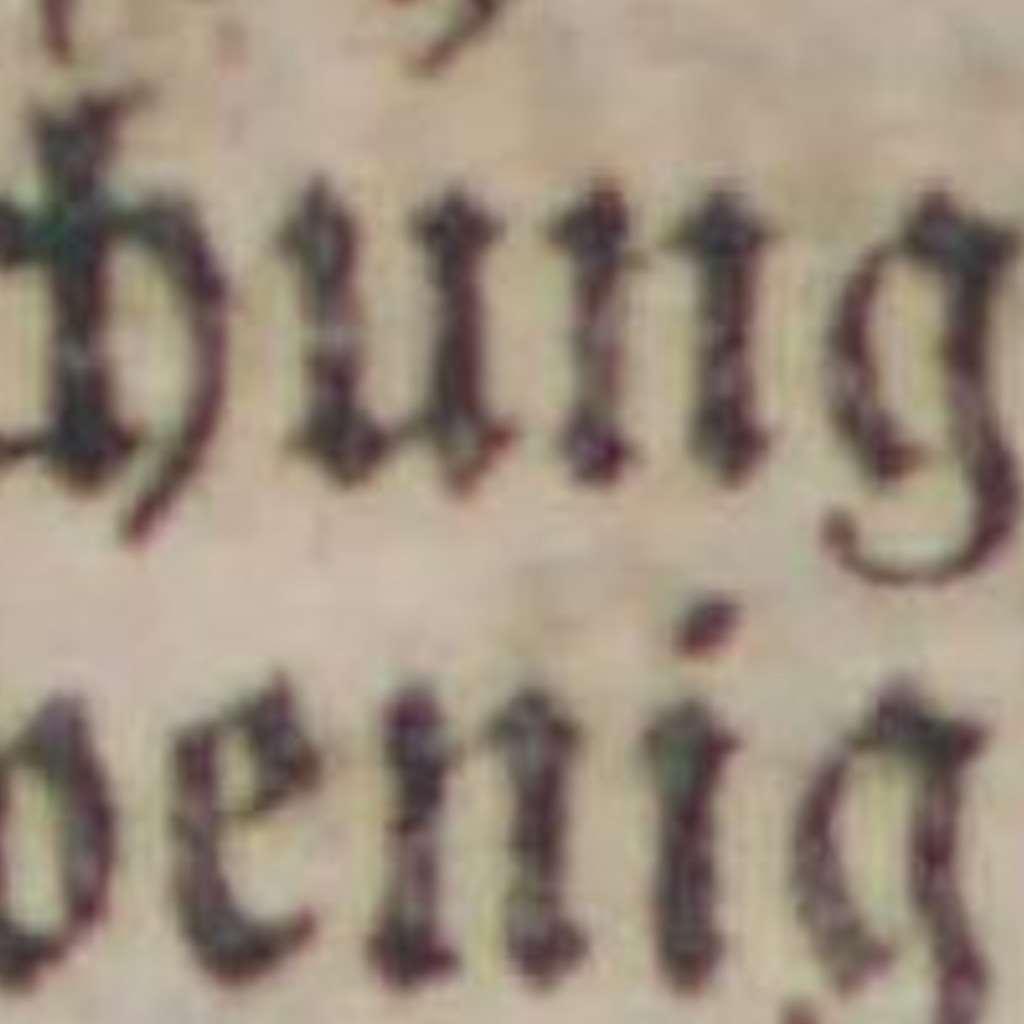 hung
oenig